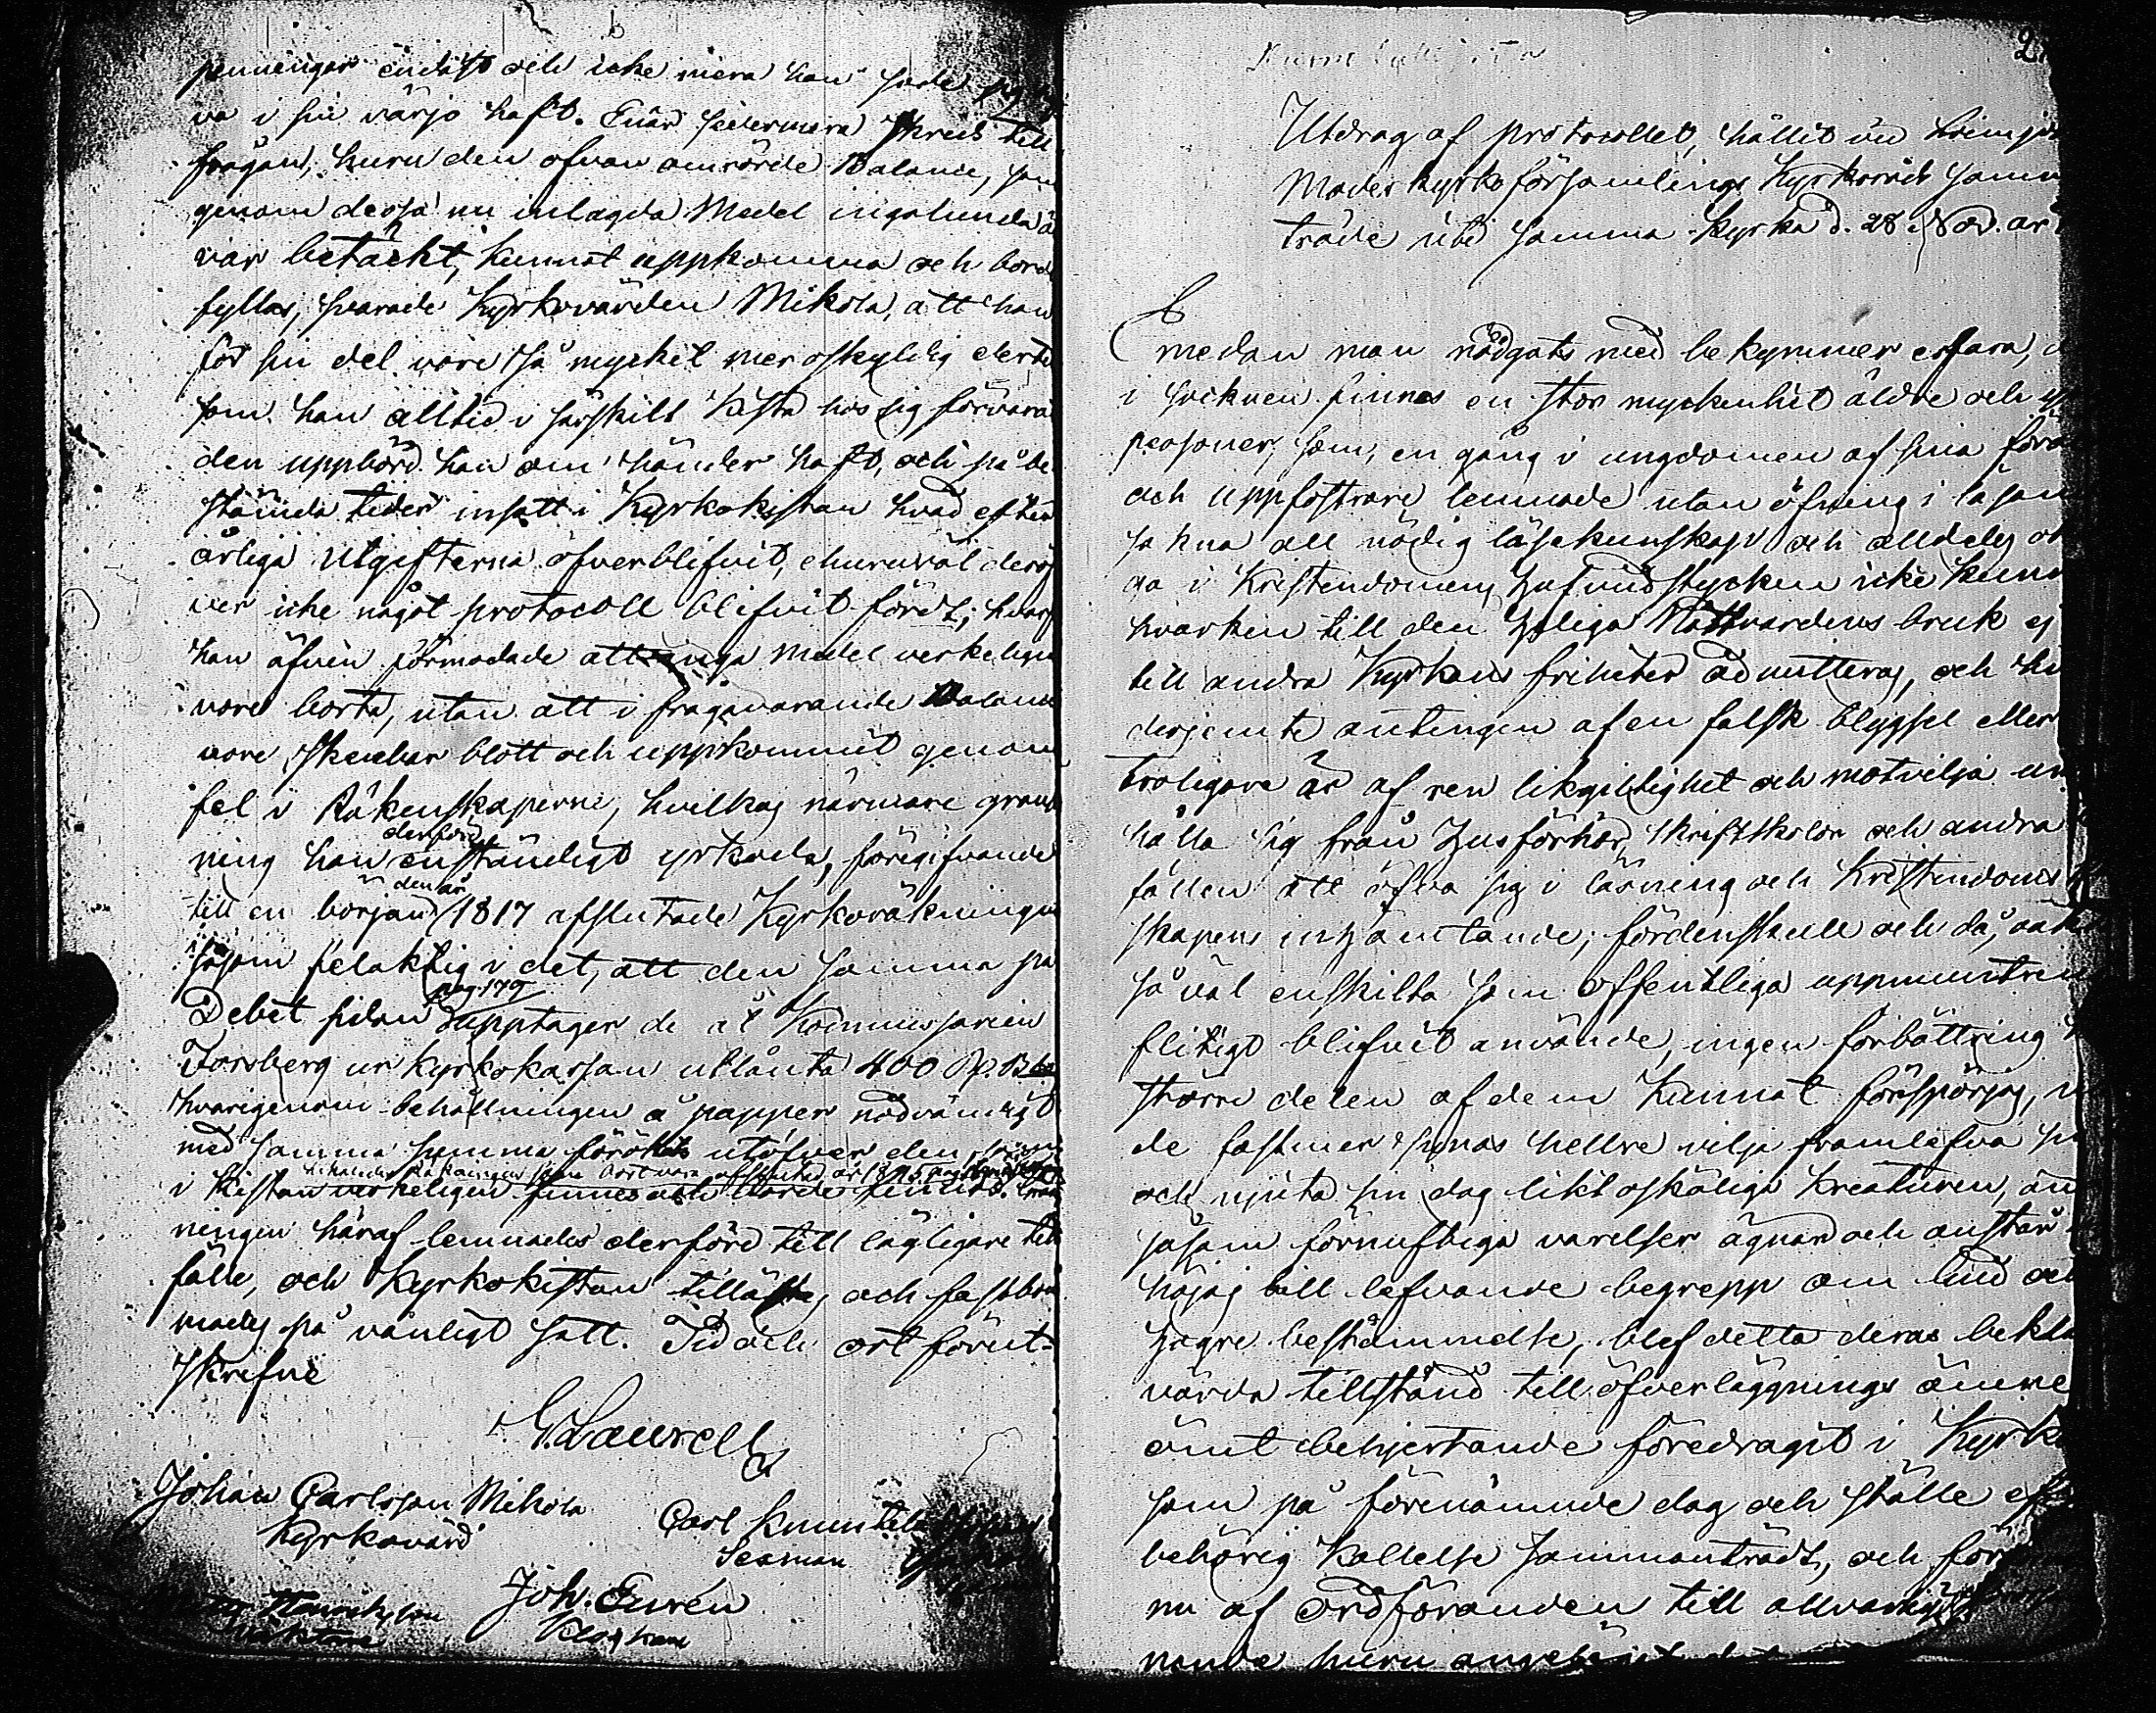 penningar endast och icke mera han hade
va i sin värjo haft. Enär sedermera skreds till
frågan, huru den ofvan omrörde Balance, som
genom dessa nu inlagda Medel ingalunda
var betäckt, kunnat uppkomma och borde
fyllas, svarade Kyrkovärden Mikola, att han
för sin del vore så mycket mer oskyldig dertil
som han alltid i särskilt Kista hos sig förvara
den uppbörd han om händer haft, och på be
stämda tider insatt i Kyrkokistan hvad efter
årliga utgifterna öfverblifvit, churuväl deröf
ver icke något protocoll blifvit fördt; hvarf
han äfven förmodade att inga medel verkeligen
vore borta, utan att i frågavarande Balance
vore skenbar blott och uppkommit genom
fel i Räkenskaperne, hvilkas närmare gransk
derföre
ning han enständigt yrkade, föregifvande
den år
till en början 1817 afslutade Kyrkoräkningen
såsom felaktig i det, att den samma på
pag. 179
Debet sidan upptager de åt Kommissarien
Forsberg ur Kyrkokassan utlånta 400 Rp. B.
hvarigenom behållningen å papper nödvändigt
med samma summa förökats utöfver den
i Kistan verkeligen finnes och borde finnas.
ningen häraf lemnades derföre till lägligare till
fälle, och Kyrkokistan tillästes och fastbom
mades på vanligt sätt. Tid och ort förut-
skrefne
G. Laurell
Johan Carlsson Mikola
Kyrkovärd
Carl Knuutila
Sexman
Joh. Eurén
Klockare
2
Utdrag af protocollet, hållit vid Kemi
Moderkyrko församlings Kyrkoråds samm
träde uti samma Kyrka d. 28 Nov. år
Emedan man nödgats med bekymmer erfara,
i socknen finnes en stor myckenhet äldre och
personer, som, en gång i ungdomen af sina förä
och uppfostrare lemnade utan öfning i läsan
sakna all nödig läsekunskap och alldeles ok
ga i Kristendomens hufvudstycken icke kunna
hvarken till den heliga Nattvardens bruk ej
till andra Kyrkans friheter admitteras, och hv
derjemte antingen af en falsk blygsel eller
troligare är af ren likgiltighet och motvilja un
hålla sig från Husförhör, skriftskolor och andra
fällen att öfva sig i läsning och Kristendoms
skapens inhämtande; fördenskull och då, oakt
så väl enskilta som offentliga uppmuntrin
flitigt blifvit använde, ingen förbättring
större delen af dem kunnat förspörjas,
de fastmer synas hellre vilja framlefva
och njuta sin dag likt oskäliga kreaturen, än
såsom förnuftiga varelser ägnar och anstår
höjas till lefvande begrepp om Gud och
högre bestämmelse, blef detta deras bekla
värda tillstånd till öfverläggnings ämne
ömt behjertande föredragit i Kyrk
som på förenämnde dag och ställe
behörig Kallelse sammanträdt, och
nu af ordföranden till allvarligt
nande huru angeläget det